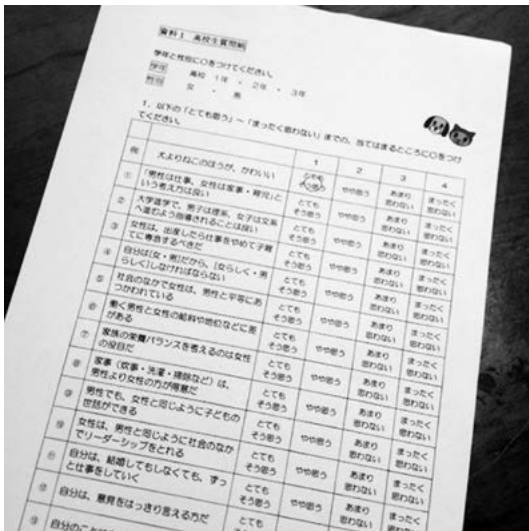 資料1 高校生質問紙
学年と性別に○をつけてください。
学年 高校 1年 ・ 2年 ・ 3年
性別 女 ・ 男
1. 以下の「とても思う」~「まったく思わない」までの、当てはまるところに○をつけ
てください。
1 2 3 4
例 犬よりねこのほうが、かわいい とても そう思う やや思う あまり 思わない まったく 思わない
① 「男性は仕事、女性は家事・育児」と
いう考え方は良い とても そう思う やや思う あまり 思わない まったく 思わない
② 大学進学で、男子は理系、女子は文系
へ進むよう指導されることは良い とても そう思う やや思う あまり 思わない まったく 思わない
③ 女性は、出産したら仕事をやめて子育
てに専念するべきだ とても そう思う やや思う あまり 思わない まったく 思わない
④ 自分は[女・男]だから、[女らしく・男
らしく]しなければならない とても そう思う やや思う あまり 思わない まったく 思わない
⑤ 社会のなかで女性は、男性と平等にあ
つかわれている とても そう思う やや思う あまり 思わない まったく 思わない
⑥ 働く男性と女性の給料や地位などに差
がある とても そう思う やや思う あまり 思わない まったく 思わない
⑦ 家族の栄養バランスを考えるのは女性
の役目だ とても そう思う やや思う あまり 思わない まったく 思わない
⑧ 家事(炊事・洗濯・掃除など)は、
男性より女性の方が得意だ とても そう思う やや思う あまり 思わない まったく 思わない
⑨ 男性でも、女性と同じように子どもの
世話ができる とても そう思う やや思う あまり 思わない まったく 思わない
⑩ 女性は、男性と同じように社会のなか
でリーダーシップをとれる とても そう思う やや思う あまり 思わない まったく 思わない
⑪ 自分は、結婚してもしなくても、ずっ
と仕事をしていく とても そう思う やや思う あまり 思わない まったく 思わない
⑫ 自分は、意見をはっきり言える方だ とても そう思う やや思う あまり 思わない
自分のこと